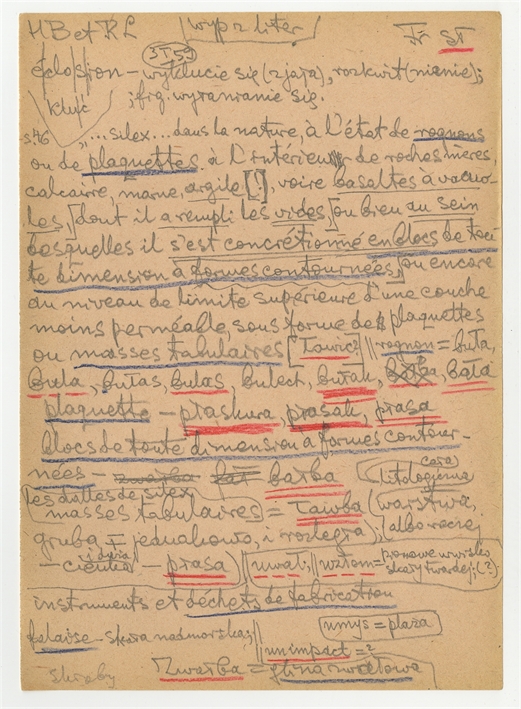 HB et RL wyp z liter Fr ST
3 I 59
éclosion – wyklucie się (z jaja), rozkwit (nianie);
kluć ; frg. wyranianie się.
s. 46 „...silex...dans la nature, à l'état de rognons
ou de plaquettes à l'intérieur de roches mères,
calcaire, marne, argile [.], voire basaltes à vacuo-
les, dont il a rempli les vides, ou bien au sein
desquelles il s'est concrétionné en blocs de tou
te dimension à formes contournées, ou encore
au niveau de limite supérieure d'une couche
moins perméable, sous forme de plaquettes
ou masses tabulaires [ławic? || rognon = buła,
buła, bułas, bulas, bulect, bułak, bała
plaquette – płaskura płasak, płasa
blocs de toute dimension à formes contour-
nées – bałba (cała)
litologiczna
les dalles de silex
masses tabulaires = ławba (warstwa,
gruba I jednakowo, i rozległa), (albo raczej
– cienka i duża – płasa) || uwał, || wzłom =
skały twardej, (?)
instruments et déchets de fabrication
falaise – skała nadmorska; || umys = plaża
unimpact = ?
Zwałba = glina zwałowa
Skróby